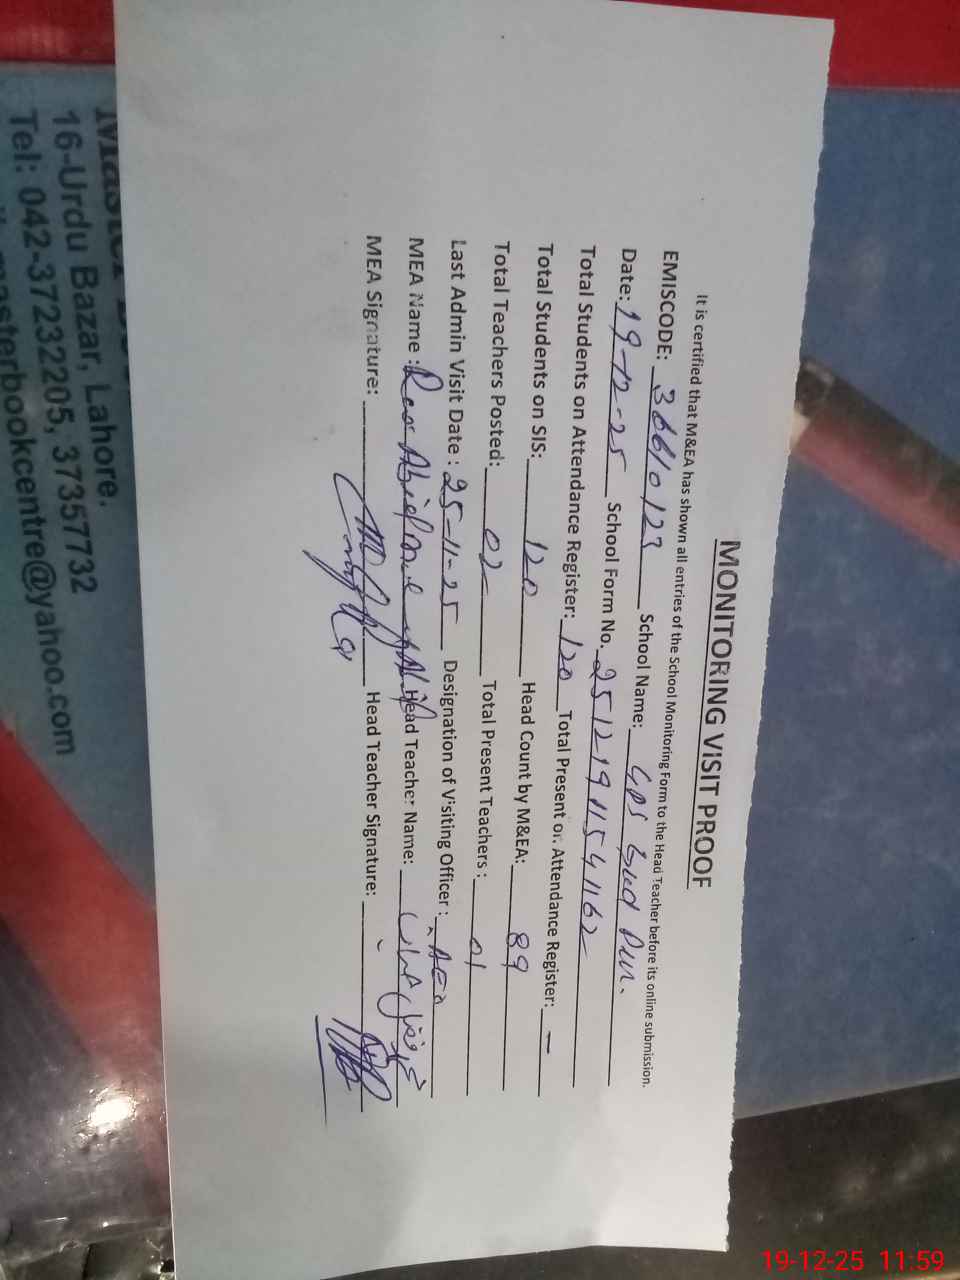 MONITORING VISIT PROOF
It is certified that M&EA has shown all entries of the School Monitoring Form to the Head Teacher before its online submission.
EMISCODE: 36610123 School Name: GPS
Date: 19-12-25 School Form No. 25121911541162
Total Students on Attendance Register: 120 Total Present on Attendance Register: —
Total Students on SIS: 120 Head Count by M&EA: 89
Total Teachers Posted: 02 Total Present Teachers: 01
Last Admin Visit Date: 25-11-25 Designation of Visiting Officer: AEO
MEA Name: Head Teacher Name:
MEA Signature: Head Teacher Signature:
16-Urdu Bazar, Lahore.
Tel: 042-37232205, 37357732
masterbookcentre@yahoo.com
19-12-25 11:59